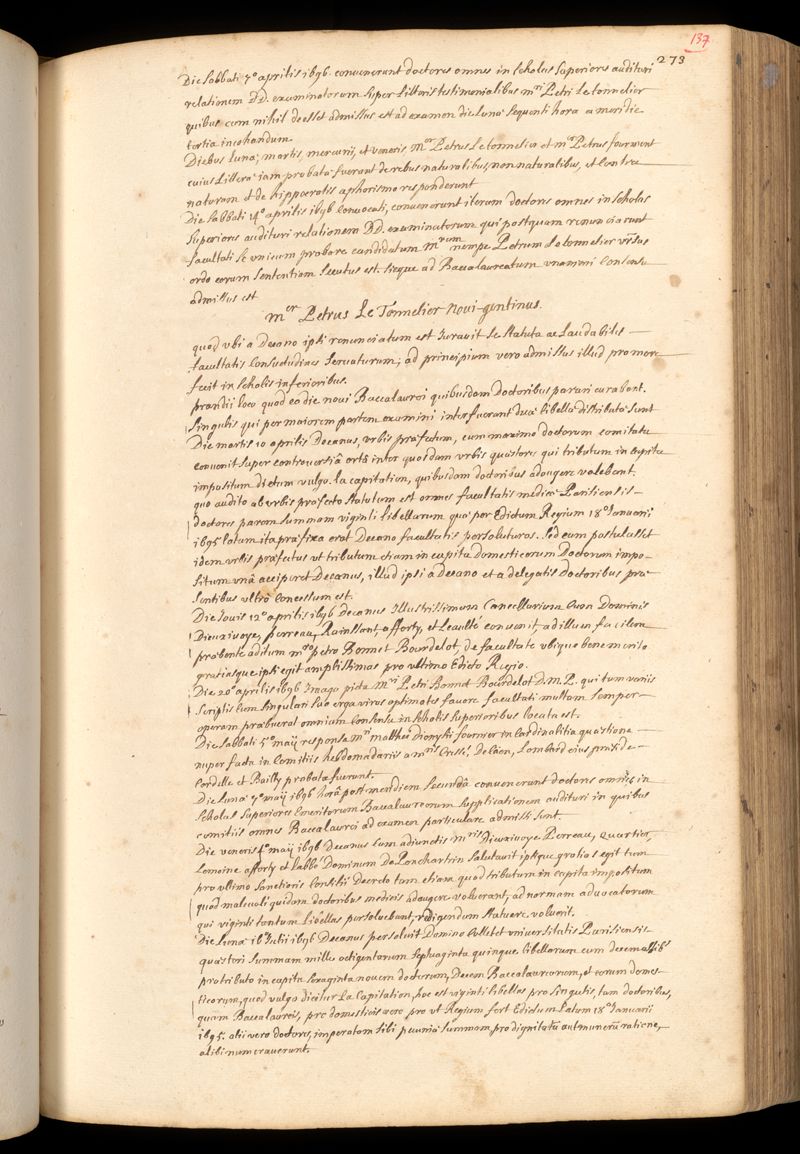 137
273
Die Sabbati 7º aprilis 1696. convenerunt doctores omnes in scholas superiores audituri
relationem DD. examinatorum super litteris testimonialibus mri Petri Le tonnelier
quibus cum nihil deesset admissus est ad examen die lunæ sequenti hora a meridie
tertia inchoandum.
Diebus lunæ, martis, mercurij, et veneris Mer Petrus Le tonnelier et mer Petrus fourment
cuius litteræ iam probatæ fuerant de rebus naturalibus, non naturalibus, et contra
naturam et de hippocratis aphorismo responderunt
Die Sabbati 14º aprilis 1696 convocati, convenerunt iterum doctores omnes in scholas
superiores audituri relationem DD. examinatorum qui postquam renunciarunt
facultati se unicum probare candidatum mrum nempe Petrum Le tonnelier
ordo eorum sententiam secutus est. sicque ad Baccalaureatum unanimi consensu
admissus est
mer Petrus Le Tonnelier Novi-gentinus.
quod ubi a Decano ipsi renunciatum est Iuravit se statuta ac laudabiles
facultatis consuetudines servaturum; ad principium vero admissus illud pro more
fecit in scholis inferioribus.
prandii loco quod eo die novi Baccalaurei quibusdam Doctoribus parari curabant.
singulis qui per maiorem partem examini interfuerant duæ libellæ distributæ sunt
Die martis 10 aprilis Decanus, urbis præfectum, cum maximo doctorum comitatu
convenit super controversiâ ortâ inter quosdam urbis quæstores qui tributum in capita
impositum dictum vulgo la capitation, quibusdam doctoribus adaugere volebant.
quo audito ab urbis præfecto statutum est omnes facultatis medicæ Parisiensis
doctores parem summam viginti libellarum quæ per Edictum Regium 18º Ianuarij
1695 latum ita præfixa erat Decano facultatis persoluturos. sed cum postulasset
idem urbis præfectus ut tributum etiam in capita Domesticorum Doctorum impo-
situm unâ acciperet Decanus, illud ipsi a Decano et a delegatis doctoribus præ-
sentibus ultro concessum est.
Die Iovis 12º aprilis 1696 Decanus Illustrissimum Cancellarium cum Dominis
Dieuxivoye, perreau, Rainssant, afforty, et Leaulté convenit, ad illum facilem
præbente aditum mro petro Bonnet Bourdelot, de facultate ubique bene merito
gratiasque ipsi egit amplissimas pro ultimo Edicto Regio.
Die 20º aprilis 1696 Imago picta mri Petri Bonnet Bourdelot D.M.P. qui tum variis
scriptis tum singulari suo erga viros optimates favore facultati multam semper
operam præbuerat omnium consensu in scholis superioribus locata est.
Die Sabbati 5º maij responsa mri matthei Dionysii fournier in Cardinalitia quæstione
nuper facta in comitiis hebdomadariis a mris Cressé, De Caen, Lombard eius præside
Cordelle et Bailly probata fuerunt.
Die Lunæ 7º maij 1696 horâ post meridiem secundâ convenerunt doctores omnes in
scholas superiores Emeritorum Baccalaureorum supplicationem audituri in quibus
comitiis omnes Baccalaurei ad examen particulare admissi sunt.
Die veneris maij 1696 Decanus cum adiunctis mris Dieuxivoye Perreau, Quartier,
Lemoine afforty et Labbé Dominum De Ponchartrin salutavit ipsique gratias egit tum
pro ultimo sanctioris consilii Decreto tum etiam quod tributum in capita impositum
quod malevoli quidam doctoribus medicis adaugere voluerant, ad normam advocatorum
qui viginti tantum libellas persolvebant, redigendum statuere voluerit.
Die Lunæ 1696 Decanus persolvit Domino Cullet et universitatis Parisiensis
quæstori summam mille octigentorum septuaginta quinque libellarum cum decem assibus
pro tributo in capita sexaginta novem doctorum, Decem Baccalaureorum, et eorum domes-
ticorum, quod vulgo dicitur La Capitation, hoc est viginti libellas pro singulis, tam doctoribus,
quam Baccalaureis, pro domesticis vero pro ut Regium fert Edictum Latum 18º Ianuarii
1695. alii vero doctores, imperatam sibi pecuniæ summam, pro dignitatū aut munerū ratione,
alibi numeraverunt.